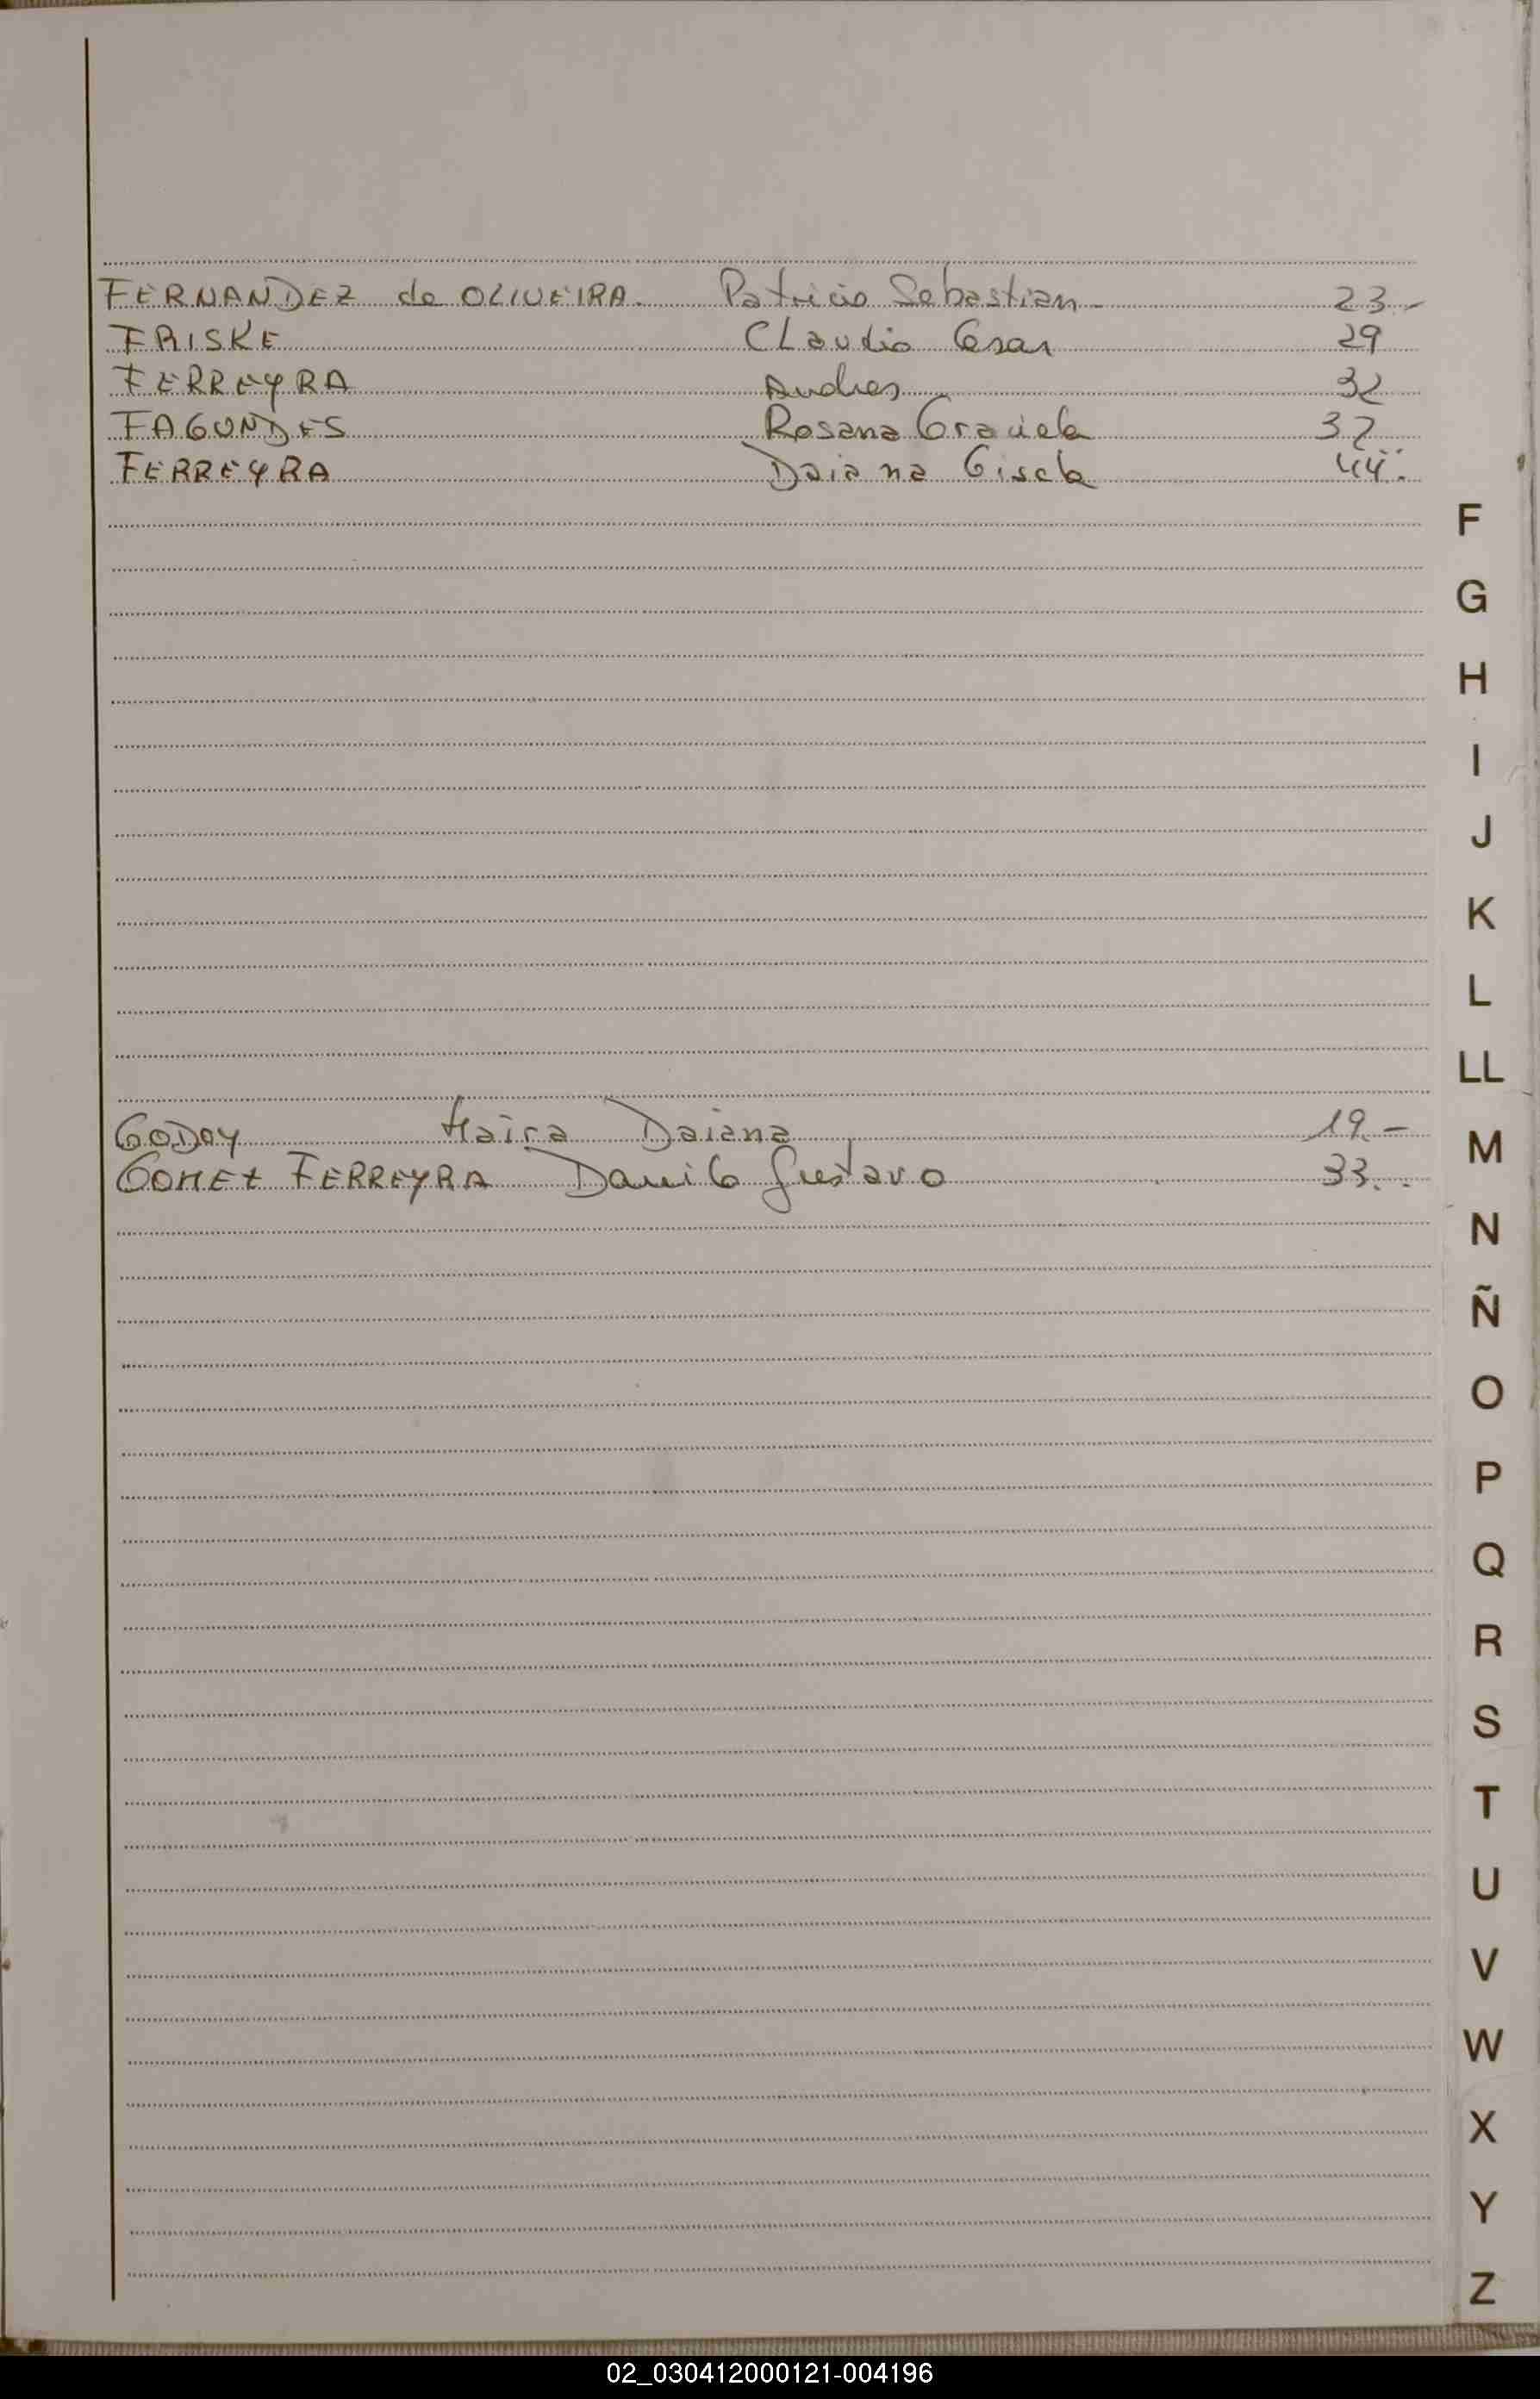 FERNANDEZ de OLIVEIRA. Patricio Sebastian - 23.-
FRISKE Claudio Cesar 29
FERREYRA Andres 32
FAGUNDES Rosana Graciela 37
FERREYRA Daiana Gisela 44.
F
G
H
I
J
K
L
LL
GODOY Maira Daiana 19.-
M
GOMEZ FERREYRA Danilo Gustavo 33..
N
Ñ
O
P
Q
R
S
T
U
V
W
X
Y
Z
02_030412000121-004196